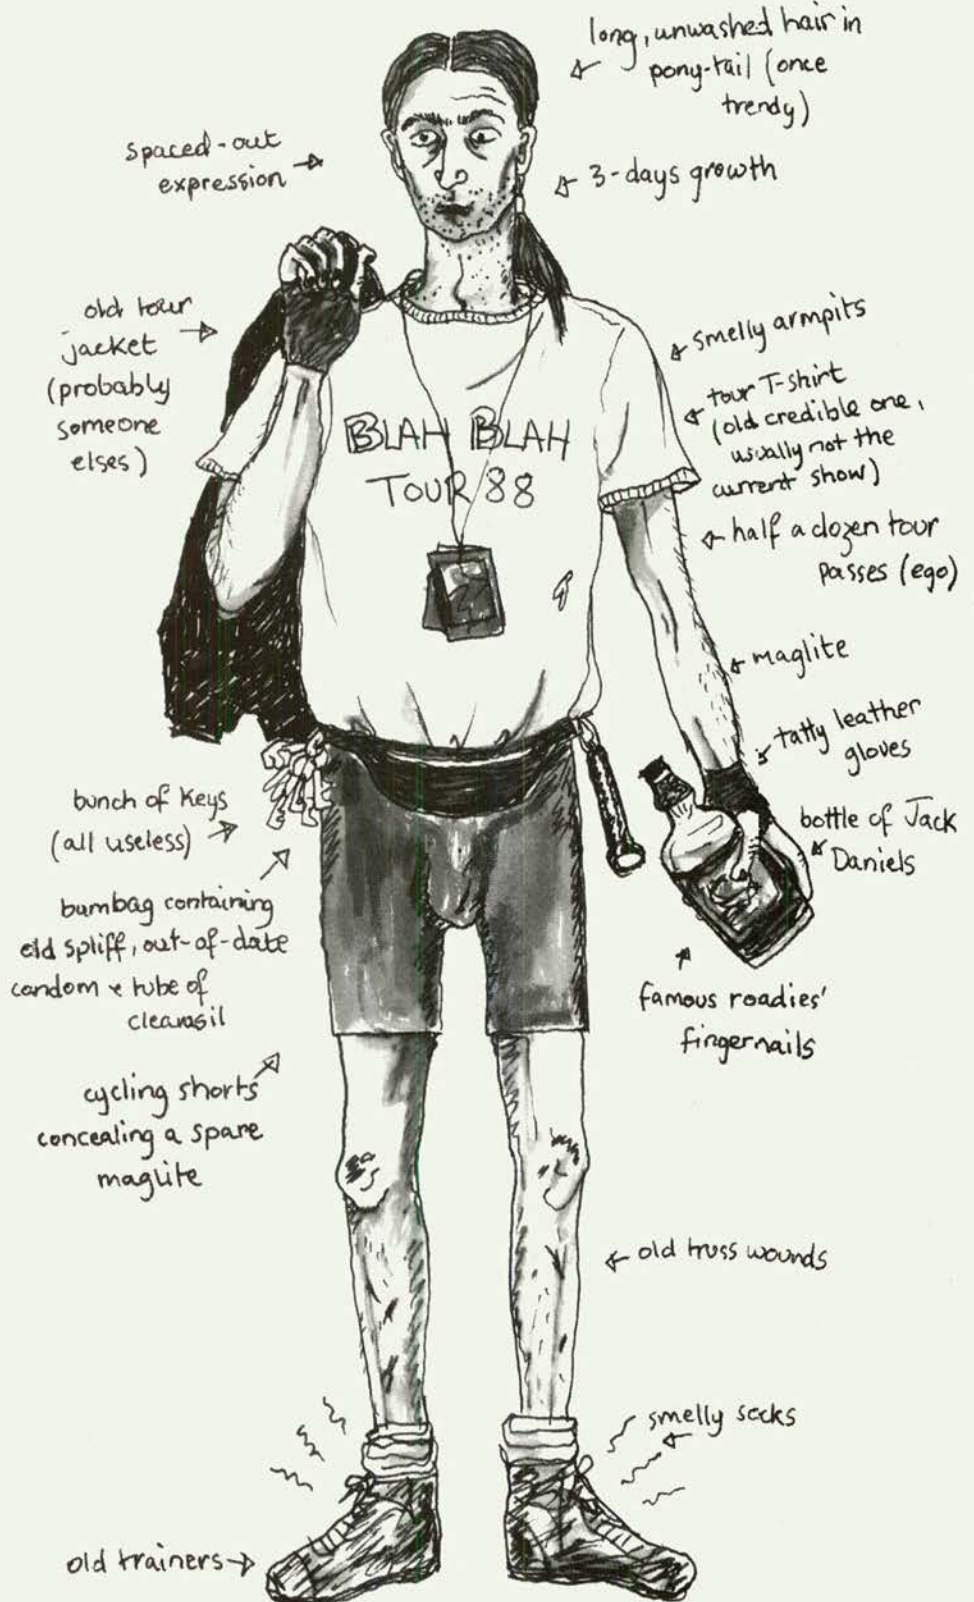 long, unwashed hair in
pony-tail (once
trendy)
spaced-out
expression
3-days growth
old tour
jacket
(probably
someone
elses)
smelly armpits
tour T-shirt
(old credible one,
usually not the
current show)
BLAH BLAH
TOUR 88
half a dozen tour
passes (ego)
maglite
tatty leather
gloves
bunch of keys
(all useless)
bottle of Jack
Daniels
bumbag containing
old spliff, out-of-date
condom & tube of
clearasil
famous roadies'
fingernails
cycling shorts
concealing a spare
maglite
old truss wounds
smelly socks
old trainers